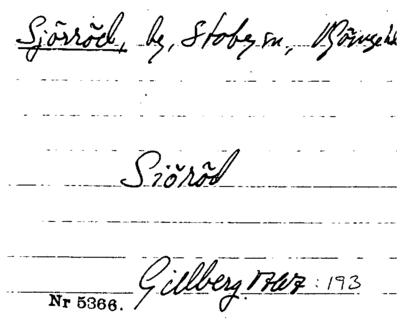 Sjörröd, by, Stoby sn,
Siöröd
Gillberg 1767 : 193
Nr 5366.